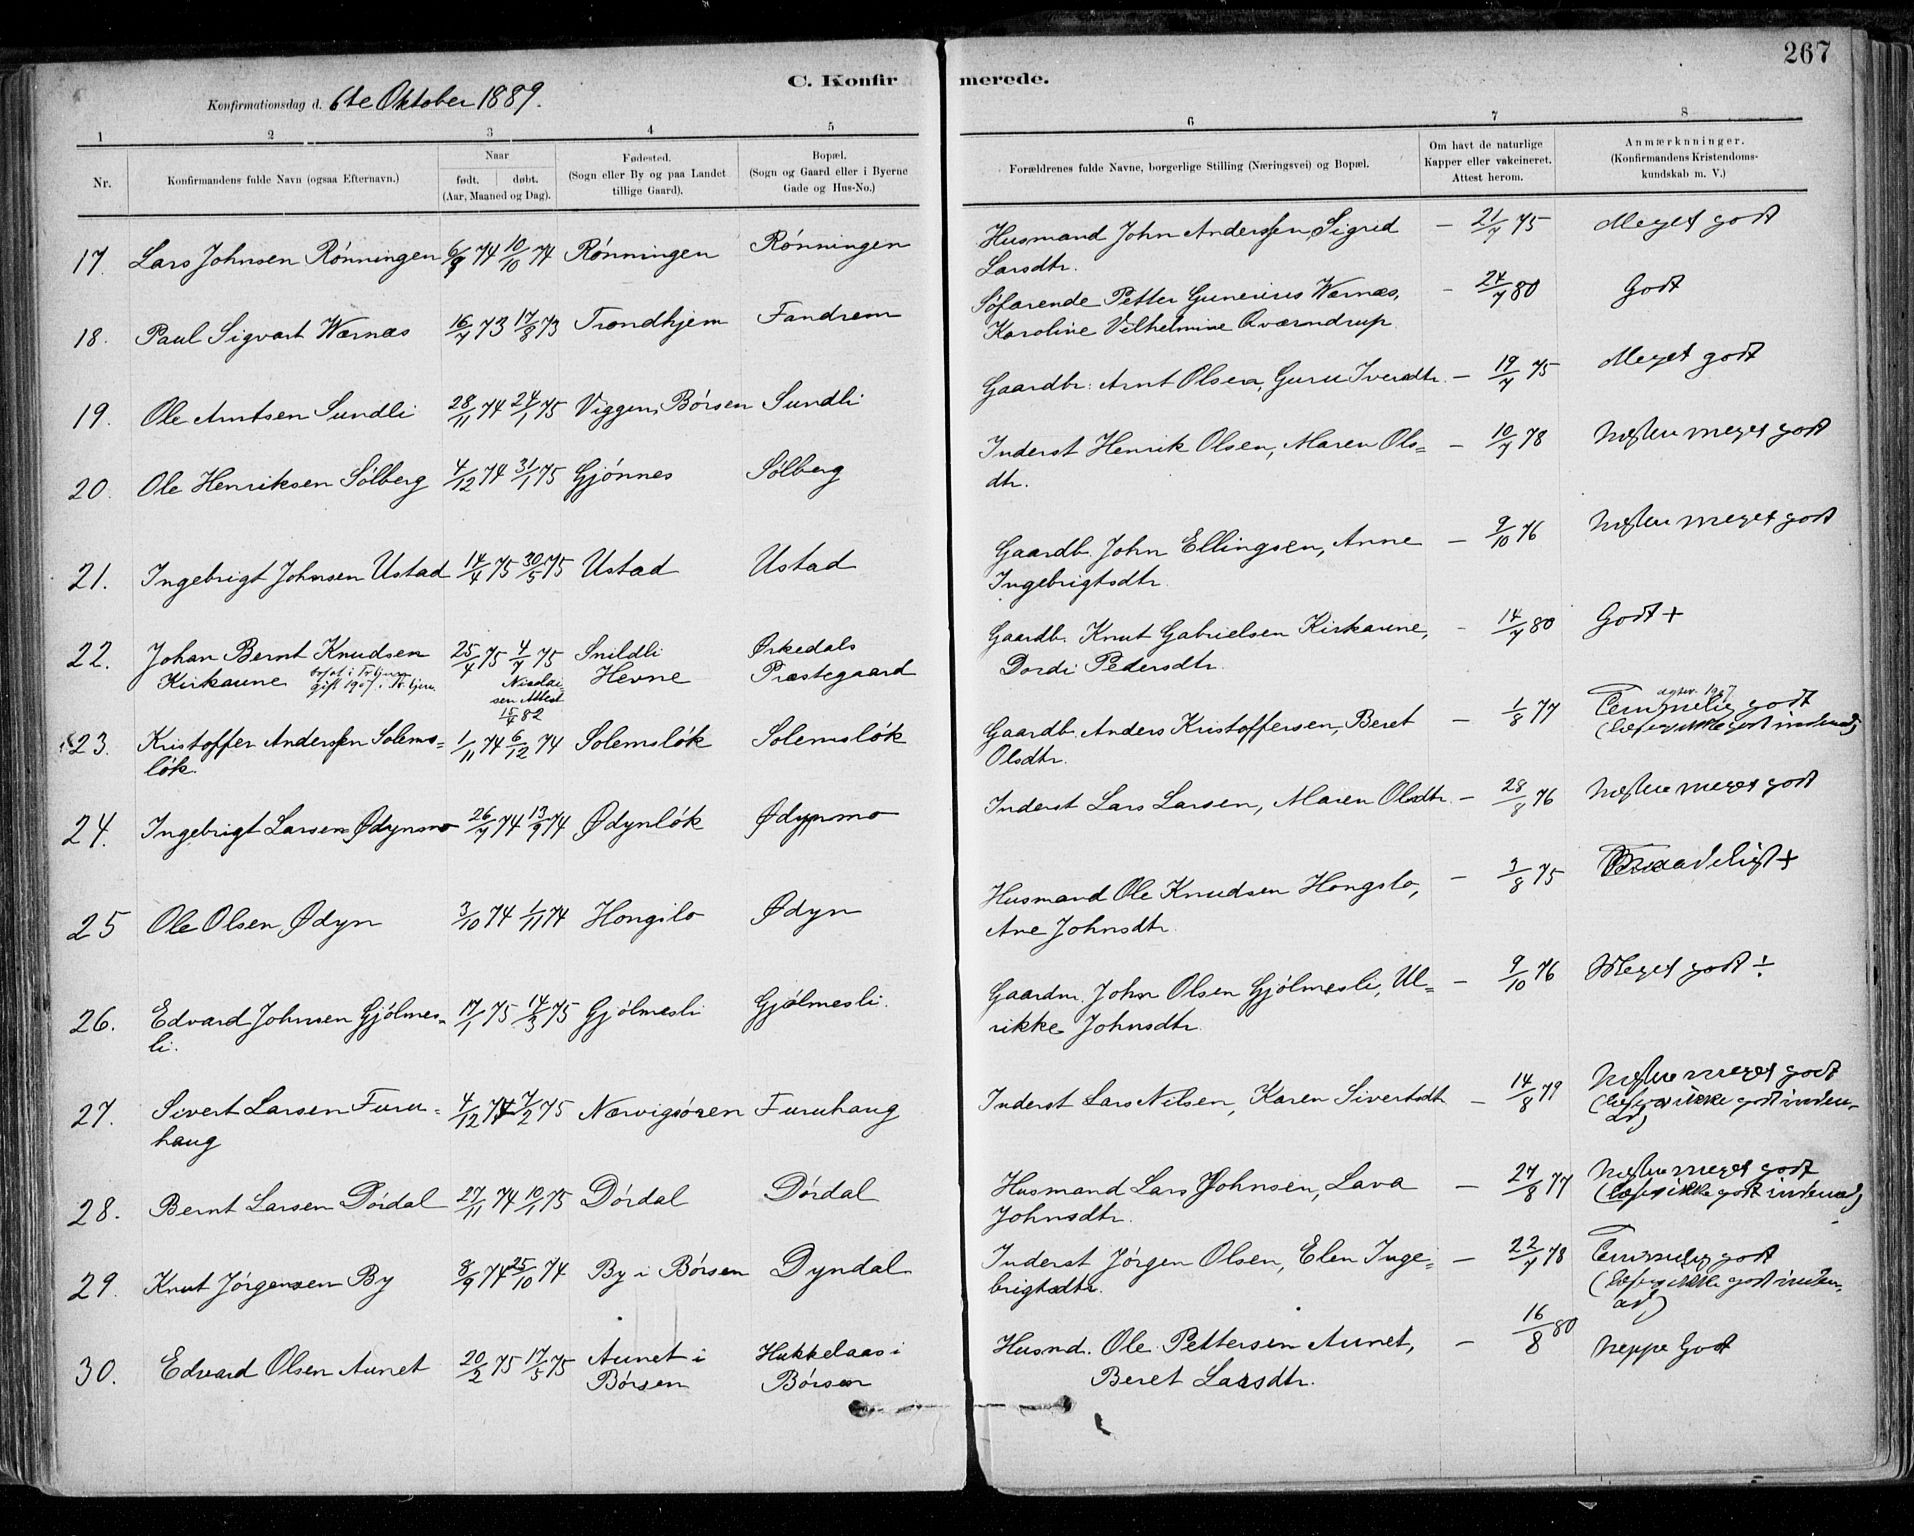 267
C. Konfirmerede.
Konfirmationsdag d. 6te Oktober 1889.
1 2 3 4 5 6 7 8
Nr.
Konfirmandens fulde Navn (ogsaa Efternavn.)
Naar
født. døbt.
(Aar, Maaned og Dag).
Fødested.
(Sogn eller By og paa Landet
tillige Gaard).
Bopæl.
(Sogn og Gaard eller i Byerne
Gade og Hus-No.)
Forældrenes fulde Navne, borgerlige Stilling (Næringsvei) og Bopæl.
Om havt de naturlige
Kapper eller vakcineret.
Attest herom.
Anmærkninger.
(Konfirmandens Kristendoms-
kundskab m. V.)
17. Lars Johnsen Rønningen 6/9 74 10/10 74 Rønningen Rønningen Husmand John Anderssen, Sigrid — 21/7 75 Meget godt
Larsdtr.
18. Paul Sigvart Wærnæs 16/7 73 17/8 73 Trondhjem Fandrem Søfarende Petter Gunerius Wærnæs, — 24/7 80 Godt
Karoline Vilhelmine Qværndrup
19. Ole Arntsen Sundli 28/11 74 24/1 75 Viggen, Børsen Sundli Gaardbr. Arnt Olsen, Guru Iversdtr. — 19/7 75 Meget godt
20. Ole Henriksen Sølberg 4/12 74 31/1 75 Gjønnes Sølberg Inderst Henrik Olsen, Maren Ols= — 10/7 78 Næsten meget godt
dtr.
21. Ingebrigt Johnsen Ustad 14/4 75 30/5 75 Ustad Ustad Gaardb. John Ellingsen, Anne — 9/10 76 Næsten meget godt
Ingebrigtsdtr.
22. Johan Bernt Knudsen 25/4 75 4/7 75 Snildli Ørkedals Gaardb. Knut Gabrielsen Kirkaune, — 14/7 80 Godt +
Kirkaune gift 1907 i Hevne Præstegaard Dordi Pedersdtr.
Attest
15/4 82
23. Kristoffer Anderssen Solems= 1/11 74 6/12 74 Solemsløk Solemsløk Gaardb. Anders Kristoffersen, Beret — 1/8 77 Temmelig godt
løk. Olsdtr. (læser ikke godt indenad)
24. Ingebrigt Larsen Ødynmo 26/7 74 13/9 74 Ødynløk Ødynmo Inderst Lars Larsen, Maren Olsdtr. — 28/8 76 Næsten meget godt
25 Ole Olsen Ødyn 3/10 74 1/11 74 Hongslo Ødyn Husmand Ole Knudsen Hongslo, — 3/8 75
Ane Johnsdtr.
26. Edvard Johnsen Gjølmes= 17/1 75 14/3 75 Gjølmesli Gjølmesli. Gaardm. John Olsen Gjølmesli, Ul= — 9/10 76 Meget godt ÷
li. rikke Johnsdtr.
27. Sivert Larsen Furu= 4/12 74 7/2 75 Nærvigsøren Furuhaug Inderst Lars Nilsen, Karen Sivertsdtr — 14/8 79 Næsten meget godt
haug (læser ikke godt inden=
ad)
28. Bernt Larsen Dørdal 27/11 74 10/1 75 Dørdal Dørdal Husmand Lars Johnsen, Lava — 27/8 77 Næsten meget godt
Johnsdtr. (læser ikke godt indenad)
29. Knut Jørgensen By 8/9 74 25/10 74 By i Børsen Dyndal Inderst Jørgen Olsen, Elen Inge= — 22/7 78 Temmelig godt
brigtsdtr. (læser ikke godt inden=
ad)
30. Edvard Olsen Aunet 20/2 75 17/5 75 Aunet i Hukkelaas i Husmd. Ole Pettersen Aunet, — 16/8 80 neppe Godt
Børsen Børsen Beret Larsdtr.